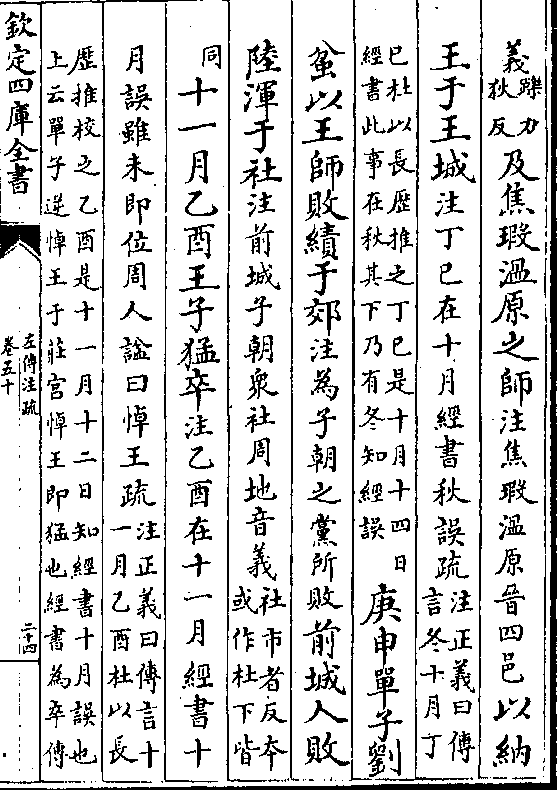 義躒力
狄反及焦瑕溫原之師注焦瑕溫原晉四邑以納
王于王城注丁巳在十月經書秋誤疏注正義曰傳
言冬十月丁
巳杜以長歷推之丁巳是十月十四日
經書此事在秋其下乃有冬知經誤庚申單子劉
蚠以王師敗績于郊注為子朝之黨所敗前城人敗
陸渾于社注前城子朝衆社周地音義社市者反夲
或作杜下皆
同十一月乙酉王子猛卒注乙酉在十一月經書十
月誤雖未即位周人諡曰悼王疏注正義曰傳言十
一月乙酉杜以長
歷推校之乙酉是十一月十二日知經書十月誤也
上云單子逆悼王于莊宮悼王即猛也經書為卒傳
欽定四庫全書
左傳注疏
卷五十
二十四